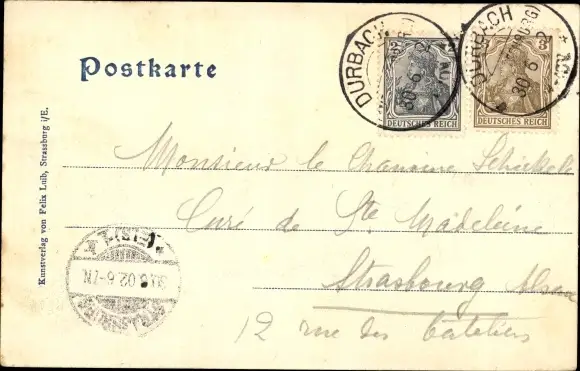 Postkarte
DURBACH
30 6
2
DEUTSCHES REICH
DURBACH
30 6 02
3
DEUTSCHES REICH
Monsieur le Chanoine Schickelé
Curé de Ste Madeleine
Strasbourg Alsace
12 rue des
30.6.02.6-7N
Kunstverlag von Felix Luib, Strassburg i/E.